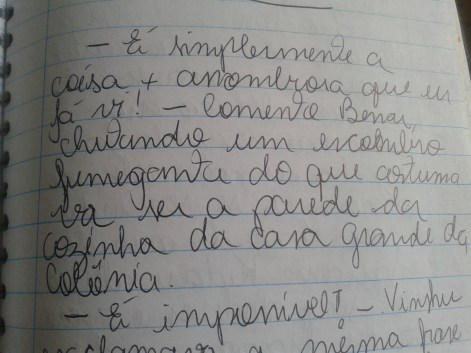 - É simplesmente a
coisa + assombrosa que eu
já vi! - Comenta Benai,
chutando um escombro
fumegante do que costuma
va ser a parede da
cozinha da casa grande da
Colônia.
- É impossível! - Vinshu
a mesma frase